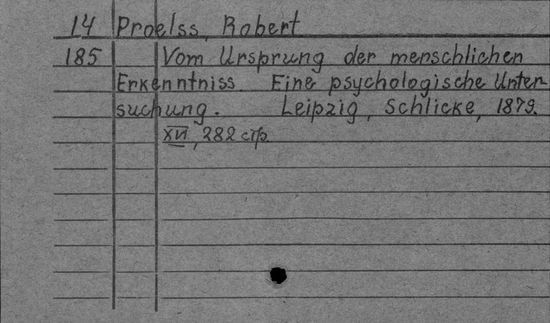 14 Proelss, Robert
185 Vom Ursprung der menschlichen
Erkenntniss. Eine psychologische Unter-
suchung. Leipzig, Schlicke, 1879.
XVI, 282 стр.